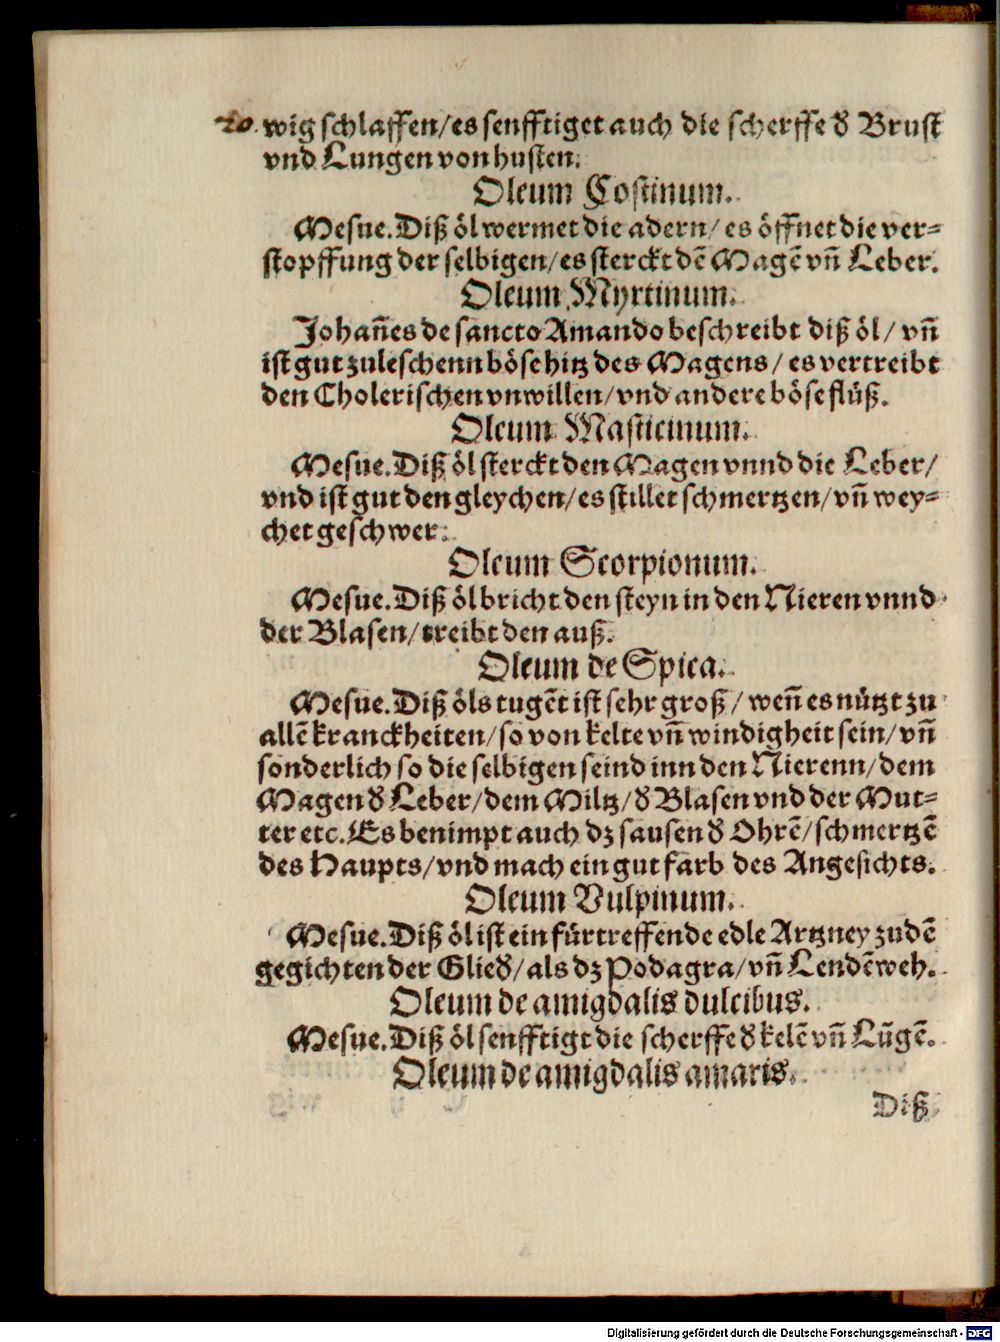 20. wig schlaffen/es senfftiget auch die scherffe d' Brust
vnd Lungen von husten.
Oleum Costinum.
Mesue. Diß öl wermet die adern/ es öffnet die ver-
stopffung der selbigen/es sterckt dẽ Magẽ vñ Leber.
Oleum Myrtinum.
Johañes de sancto Amando beschreibt diß öl/ vñ
ist gut zuleschenn böse hitz des Magens/ es vertreibt
den Cholerischen vnwillen/vnd andere böse flüß.
Oleum Masticinum.
Mesue. Diß öl sterckt den Magen vnnd die Leber/
vnd ist gut den gleychen/es stillet schmertzen/vñ wey-
chet geschwer.
Oleum Scorpionum.
Mesue. Diß öl bricht den steyn in den Nieren vnnd
der Blasen/treibt den auß.
Oleum de Spica.
Mesue. Diß öls tugẽt ist sehr groß/ weñ es nützt zu
allẽ kranckheiten/so von kelte vñ windigheit sein/vñ
sonderlich so die selbigen seind inn den Nierenn/dem
Magen d' Leber/dem Miltz/d' Blasen vnd der Mut-
ter etc. Es benimpt auch dz sausen d' Ohrẽ/schmertzẽ
des Haupts/vnd mach ein gut farb des Angesichts.
Oleum Vulpinum.
Mesue. Diß öl ist ein fürtreffende edle Artzney zu dẽ
gegichten der Glied'/als dz Podagra/vñ Lendẽweh.
Oleum de amigdalis dulcibus.
Mesue. Diß öl senfftigt die scherffe d' kelẽ vñ Lũgẽ.
Oleum de amigdalis amaris.
Diß
Digitalisierung gefördert durch die Deutsche Forschungsgemeinschaft - DFG